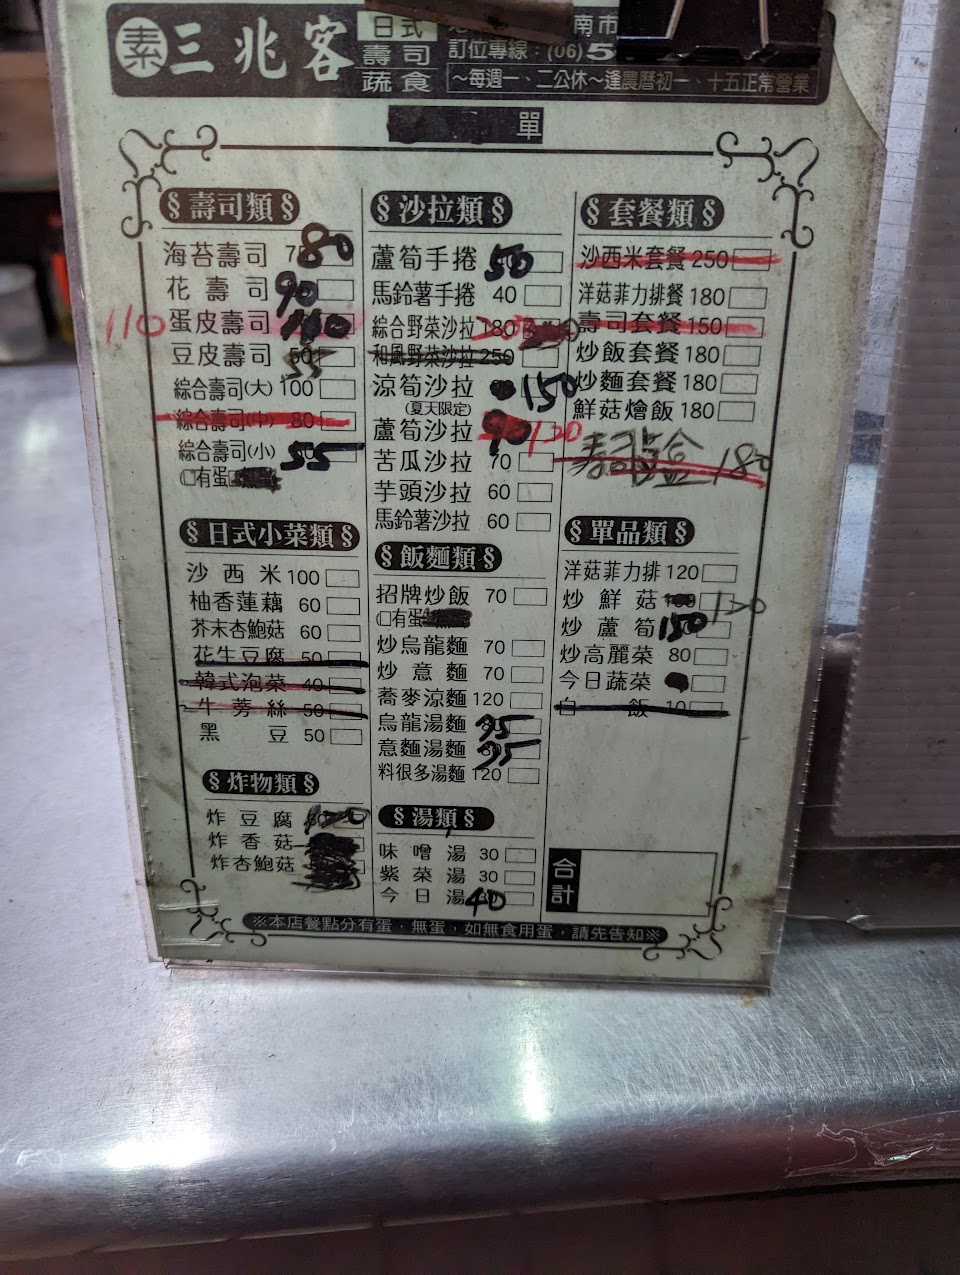 素 三兆客 日式壽司蔬食
南市
訂位專線：(06)5
～每週一、二公休～逢農曆初一、十五正常營業
單
§壽司類§
海苔壽司 80
花壽司 90
110 蛋皮壽司 110
豆皮壽司 55
綜合壽司(大) 100
綜合壽司(中) 80
綜合壽司(小) 55
□有蛋
§日式小菜類§
沙西米 100
柚香蓮藕 60
芥末杏鮑菇 60
花生豆腐 50
韓式泡菜 40
牛蒡絲 50
黑豆 50
§炸物類§
炸豆腐 120
炸香菇
炸杏鮑菇
§沙拉類§
蘆筍手捲 50
馬鈴薯手捲 40
綜合野菜沙拉 180
和風野菜沙拉 250
涼筍沙拉 150
(夏天限定)
蘆筍沙拉 90 120
苦瓜沙拉 70
芋頭沙拉 60
馬鈴薯沙拉 60
§飯麵類§
招牌炒飯 70
□有蛋
炒烏龍麵 70
炒意麵 70
蕎麥涼麵 120
烏龍湯麵 95
意麵湯麵 95
料很多湯麵 120
§湯類§
味噌湯 30
紫菜湯 30
今日湯 40
§套餐類§
沙西米套餐 250
洋菇菲力排餐 180
壽司套餐 150
炒飯套餐 180
炒麵套餐 180
鮮菇燴飯 180
壽司 盒 180
§單品類§
洋菇菲力排 120
炒鮮菇 120
炒蘆筍 150
炒高麗菜 80
今日蔬菜
白飯 10
合計
※本店餐點分有蛋，無蛋，如無食用蛋，請先告知※